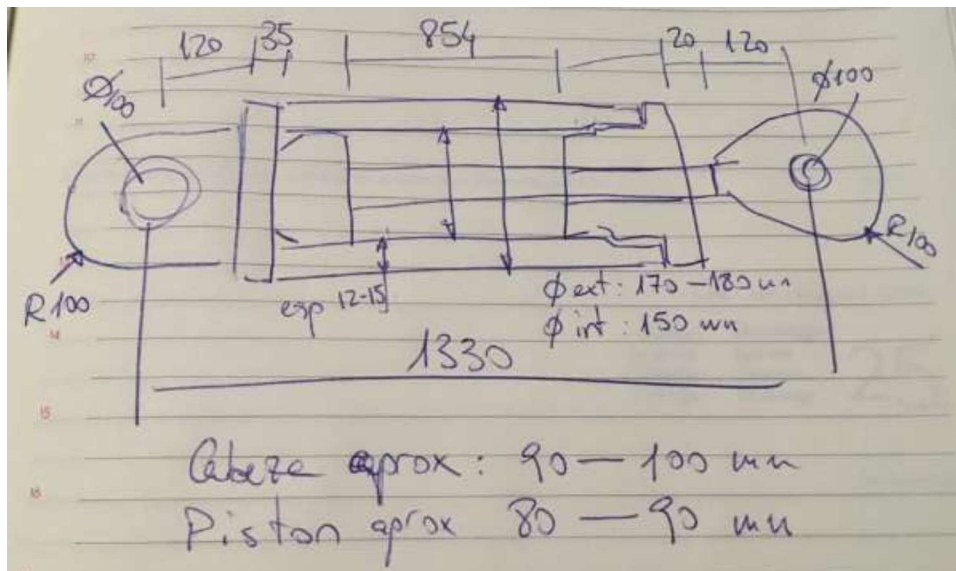 120 35 854 20 120
Ø100 Ø100
R100 R100
esp 12-15
Ø ext: 170-180 mm
Ø int: 150 mm
1330
Cabeza aprox: 90 - 100 mm
Piston aprox 80 - 90 mm